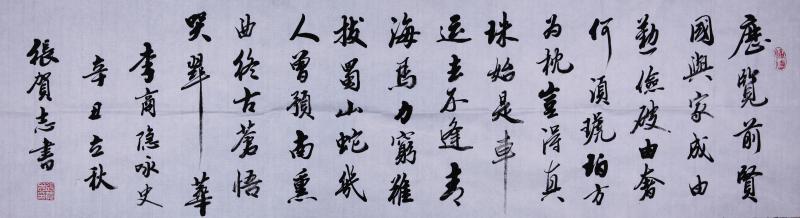 歷覽前賢
國與家成由
勤儉破由奢
何須琥珀方
為枕豈得真
珠始是車
運去不逢青
海馬力窮難
拔蜀山蛇幾
人曾預南薰
曲終古蒼悟
哭翠華
李商隐咏史
辛丑立秋
張賀志書